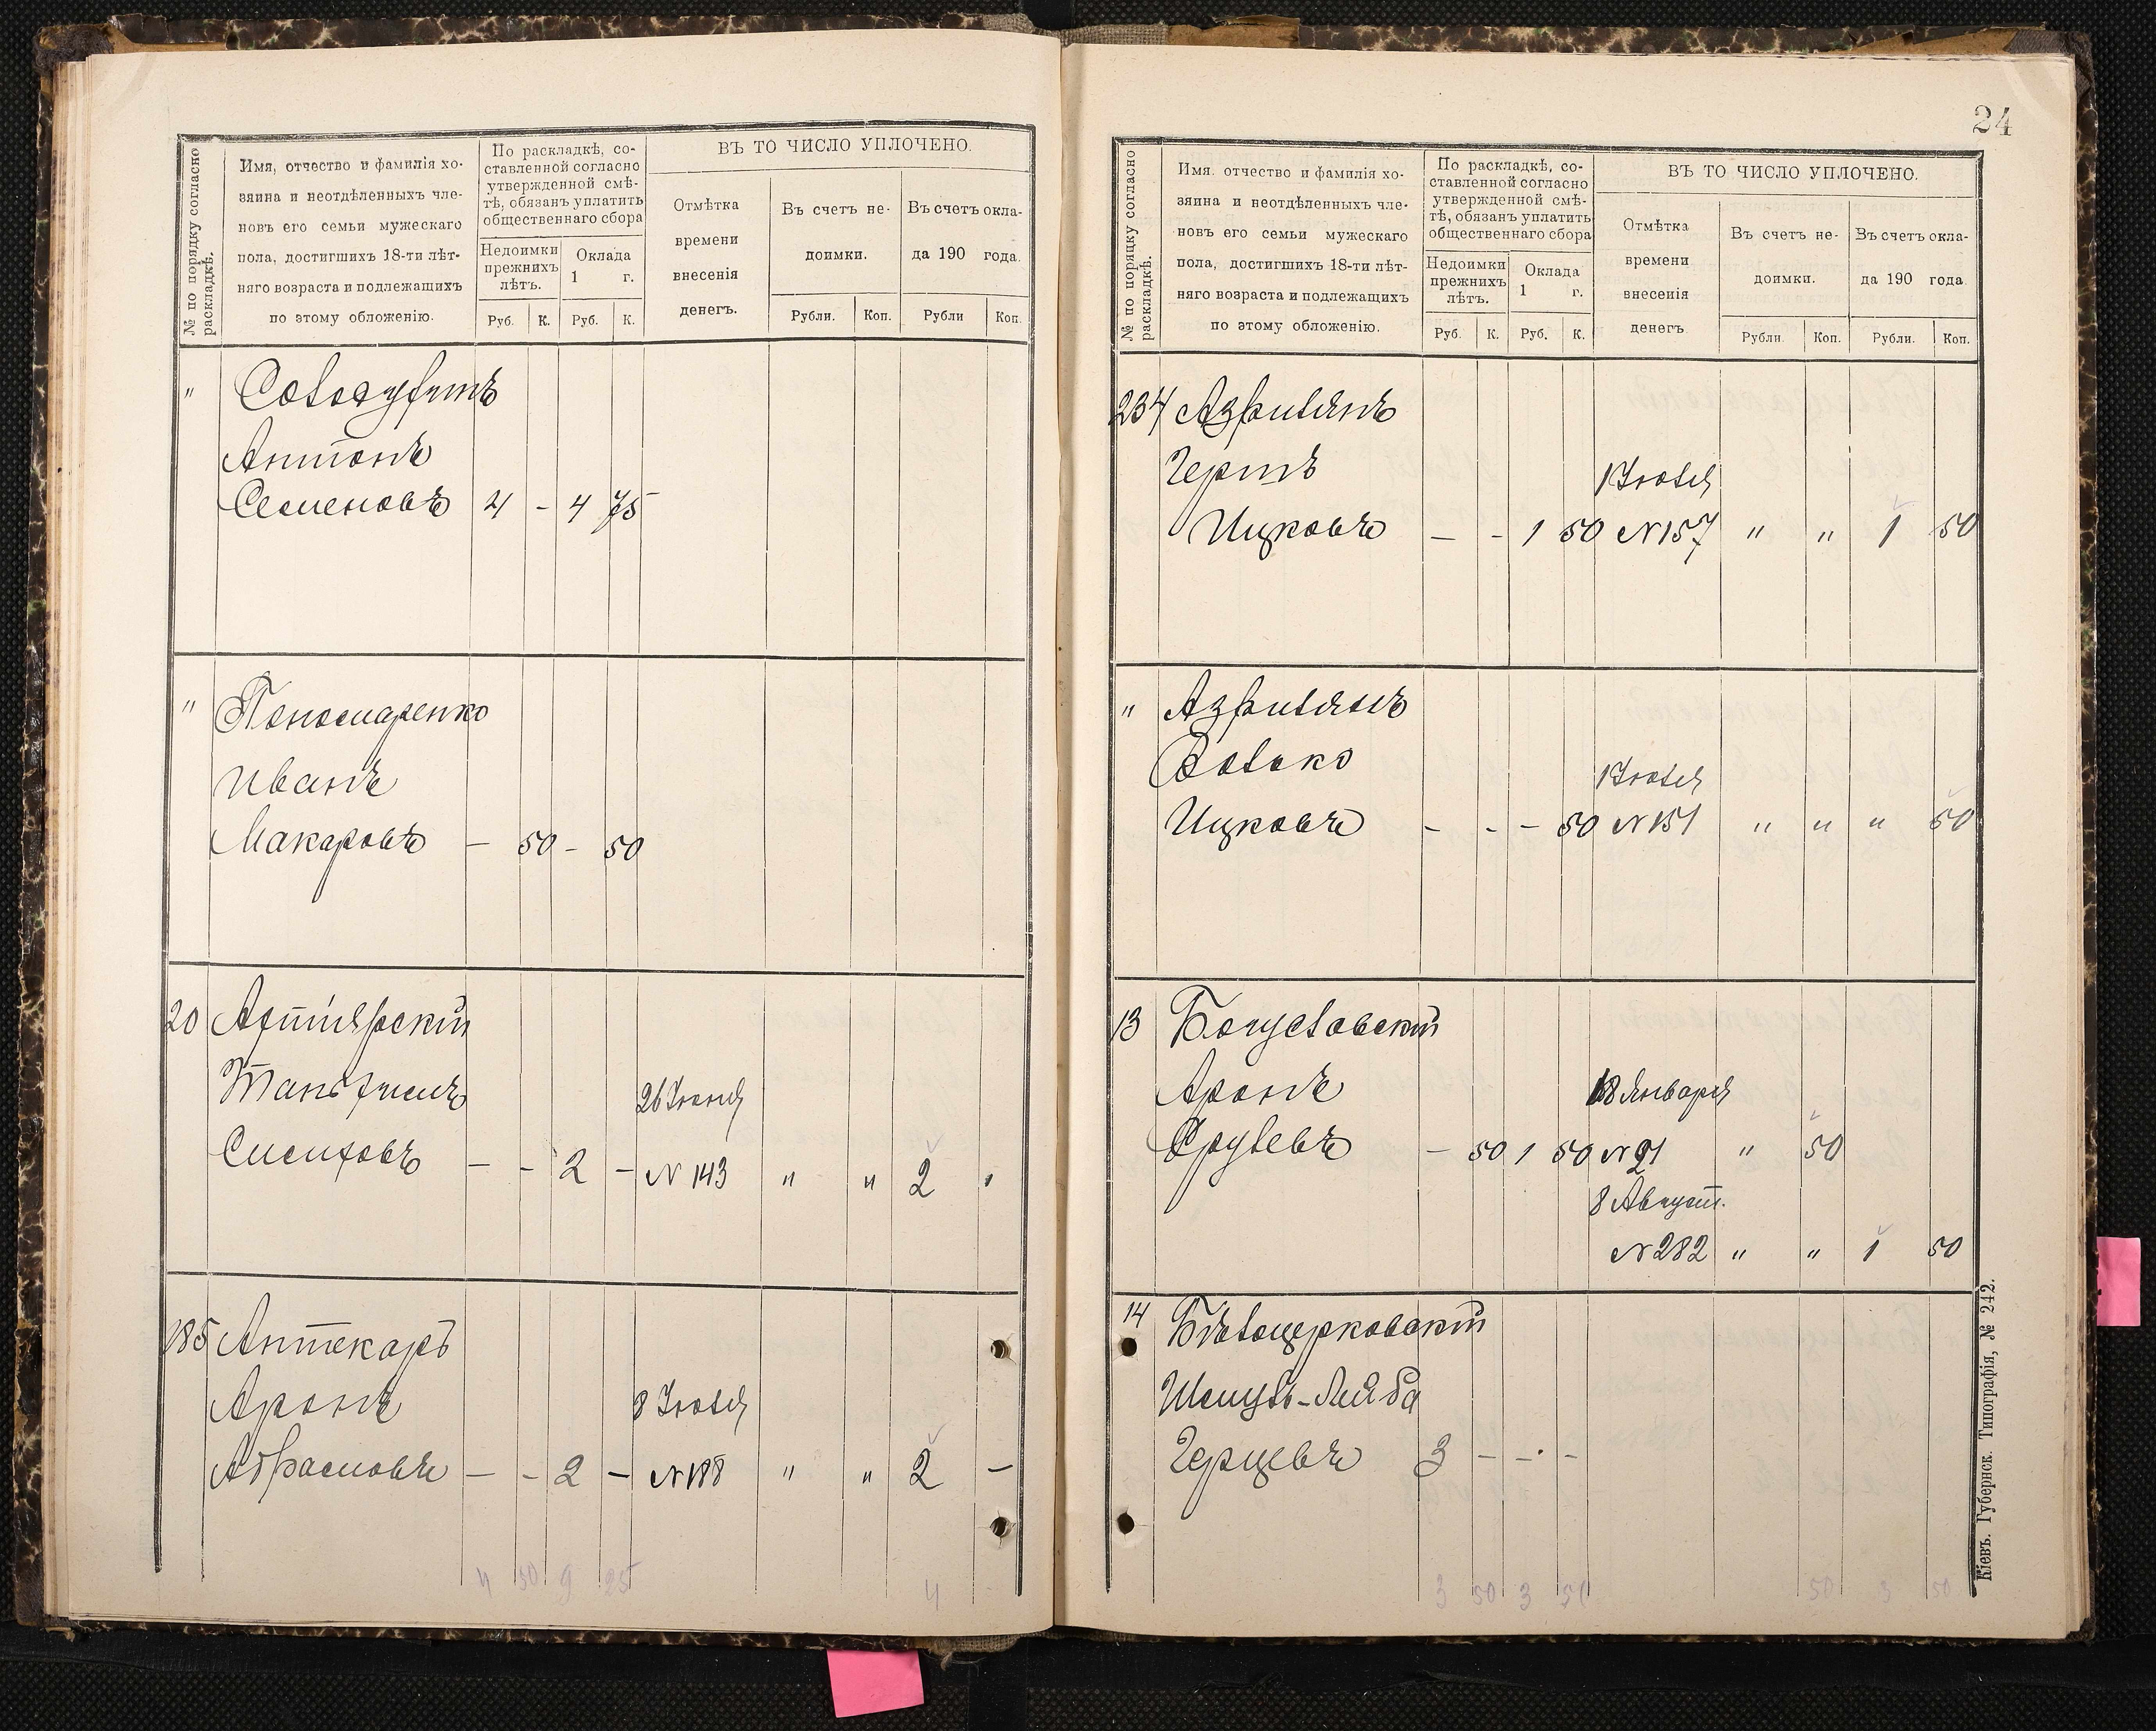 № по порядку согласно раскладкѣ.
Имя, отчество и фамилія хо-
зяина и неотдѣленныхъ чле-
новъ его семьи мужескаго
пола, достигшихъ 18-ти лѣт-
няго возраста и подлежащихъ
по этому обложенію.
По раскладкѣ, со-
ставленной согласно
утвержденной смѣ-
тѣ, обязанъ уплатить
общественнаго сбора
Недоимки
прежнихъ
лѣтъ.
Оклада
1 г.
Руб. К. Руб. К.
ВЪ ТО ЧИСЛО УПЛОЧЕНО.
Отмѣтка
времени
внесенія
денегъ.
Въ счетъ не-
доимки.
Въ счетъ окла-
да 190 года.
Рубли. Коп. Рубли Коп.
"
Антонъ
Семеновъ 4 - 4 75
" Пономаренко
Иванъ
Макаровъ — 50 - 50
20 Ахтырскій
26 Іюня
— - 2 - N 143 " " 2 "
185 Аптекарь
Аронъ 8 Іюля
Абрамовъ — - 2 — N 188 " " 2 —
4 50 9 25 4
24
№ по порядку согласно раскладкѣ.
Имя. отчество и фамилія хо-
зяина и неотдѣленныхъ чле-
новъ его семьи мужескаго
пола, достигшихъ 18-ти лѣт-
няго возраста и подлежащихъ
по этому обложенію.
По раскладкѣ, со-
ставленной согласно
утвержденной смѣ-
тѣ, обязанъ уплатить
общественнаго сбора
Недоимки
прежнихъ
лѣтъ.
Оклада
1 г.
Руб. К. Руб. К.
ВЪ ТО ЧИСЛО УПЛОЧЕНО.
Отмѣтка
времени
внесенія
денегъ
Въ счетъ не-
доимки.
Въ счетъ окла-
да 190 года
Рубли. Коп. Рубли. Коп.
234 Азрилянъ
Гершъ 1 Іюля
Ицковъ — - 1 50 N 157 " " 1 50
" Азрилянъ
1 Іюля
Ицковъ - - - 50 N 151 " " " 50
13 Богуславскій
Аронъ 18 Января
Срулевъ - 50 1 50 N 21 " 50
8 Август.
N 282 " " 1 50
14 Бѣлоцерковскій
Шмуль-Лейба
Герцевъ 3 - - -
3 50 3 50 50 3 50
Кіевъ. Губернск. Типографія, № 242.